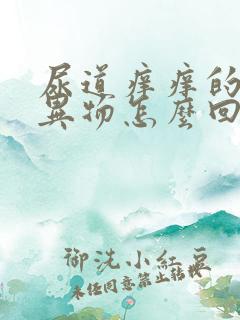 尿道痒痒的
異物怎麼回
御洗小紅豆
未经同意禁止转载